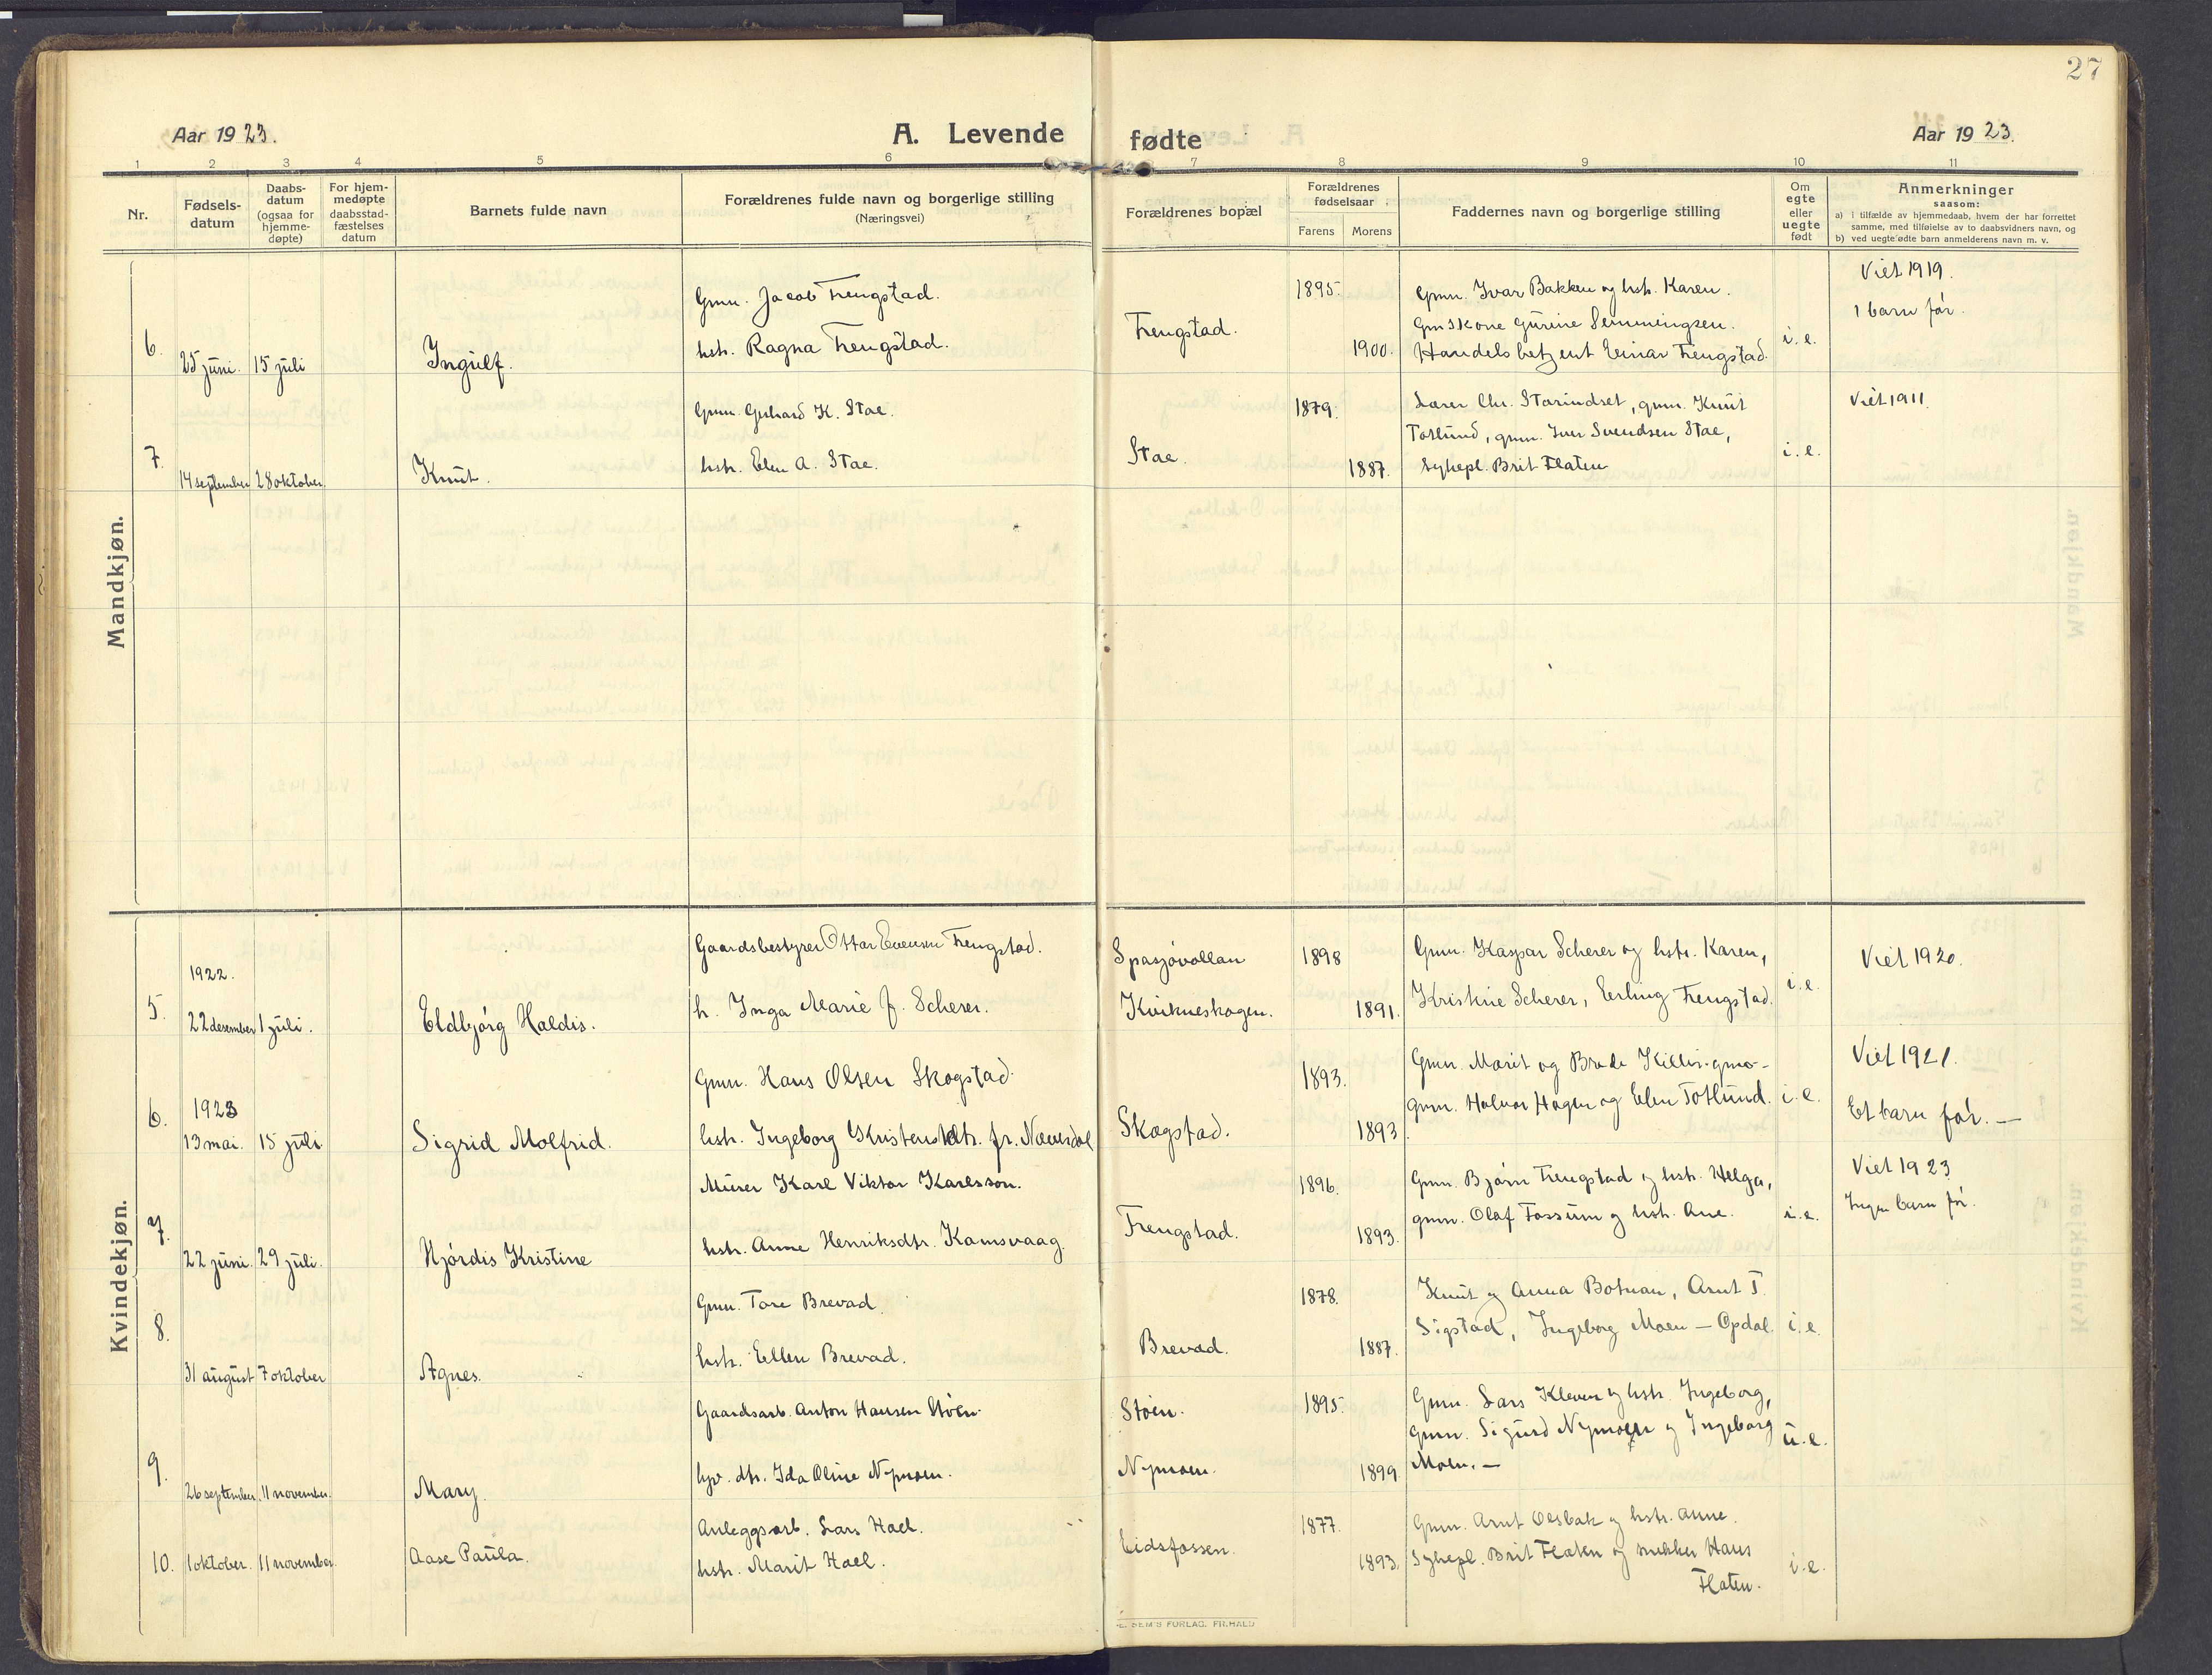 27
Aar 1923.
A. Levende fødte
Aar 1923.
1 2 3 4 5 6 7 8 9 10 11
Nr.
Fødsels-
datum
Daabs-
datum
(ogsaa for
hjemme-
døpte)
For hjem-
medøpte
daabsstad-
fæstelses
datum
Barnets fulde navn
Forældrenes fulde navn og borgerlige stilling
(Næringsvei)
Forældrenes bopæl
Forældrenes
fødselsaar
Farens
Morens
Faddernes navn og borgerlige stilling
Om
egte
eller
uegte
født
Anmerkninger
saasom:
a) i tilfælde av hjemmedaab, hvem der har forrettet
samme, med tilføielse av to daabsvidners navn, og
b) ved uegte fødte barn anmelderens navn m. v.
Mandkjøn.
6.
25 juni.
15 juli
Ingulf.
Gmn. Jacob Trengstad.
hstr. Ragna Trengstad.
Trengstad.
1895.
1900.
Gmn. Ivar Bakken og hstr. Karen.
Gmskone Gurine Semmingsen.
Handelsbetjent Einar Trengstad.
i. e.
Viet 1919.
1 barn før.
7.
14 september
28 oktober.
Knut.
Gmn. Gerhard K. Stae.
hstr. Elen A. Stae.
Stae.
1879.
1887.
Lærer Chr. Starindset, gmn. Knut
Totlund, gmn. Iver Svendsen Stae,
Sykepl. Brit Flaten
i. e.
Viet 1911.
Kvindekjøn.
5.
1922.
22 desember
1 juli.
Eldbjørg Haldis.
Gaardsbestyrer Ottar Evensen Trengstad.
h. Inga Marie f. Scherer.
Spasjøvollan
Kvikneskogen.
1898
1891.
Gmn. Kaspar Scherer og hstr. Karen,
Kristine Scherer, Erling Trengstad.
i. e.
Viet 1920.
6.
1923
13 mai.
15 juli
Sigrid Molfrid.
Gmn. Hans Olsen Skogstad.
hstr. Ingeborg Kristensdtr. fr. Naversdal
Skogstad.
1893.
1893.
Gmn. Marit og Brede
gmn. Halvor Hagen og Elen Totlund.
i. e.
Viet 1921.
Et barn før. —
7.
22 juni.
29 juli.
Hjørdis Kristine
Murer Karl Viktor Karlsson.
hstr. Anne Henriksdtr. Kamsvaag.
Trengstad.
1896.
1893.
Gmn. Bjørn Trengstad og hstr. Helga,
gmn. Olaf Fossum og hstr. Ane.
i. e.
Viet 1923
Ingen barn før.
8.
31 august
7 oktober
Agnes.
Gmn. Tore Brevad.
hstr. Ellen Brevad.
Brevad.
1878.
1887.
Knut og Anna Botnan, Arnt T.
Sigstad, Ingeborg Moen — Opdal.
i. e.
9.
26 september.
11 november.
Mary.
Gaardsarb. Anton Hansen Støen.
hjv. dtr. Ida Oline Nymoen.
Støen.
Nymoen.
1895.
1899.
Gmn. Lars Kleven og hstr. Ingeborg,
gmn. Sigurd Nymoen og Ingeborg
Moen. —
u. e.
10.
1 oktober.
11 november.
Aase Paula.
Anleggsarb. Lars Hoel.
hstr. Marit Hoel.
Eidsfossen.
1877.
1893.
Gmn. Arnt Olsbak og hstr. Anne.
Sykepl. Brit Flaten og snekker Hans
Flaten.
i. e.
E. SEM'S FORLAG, FR.HALD